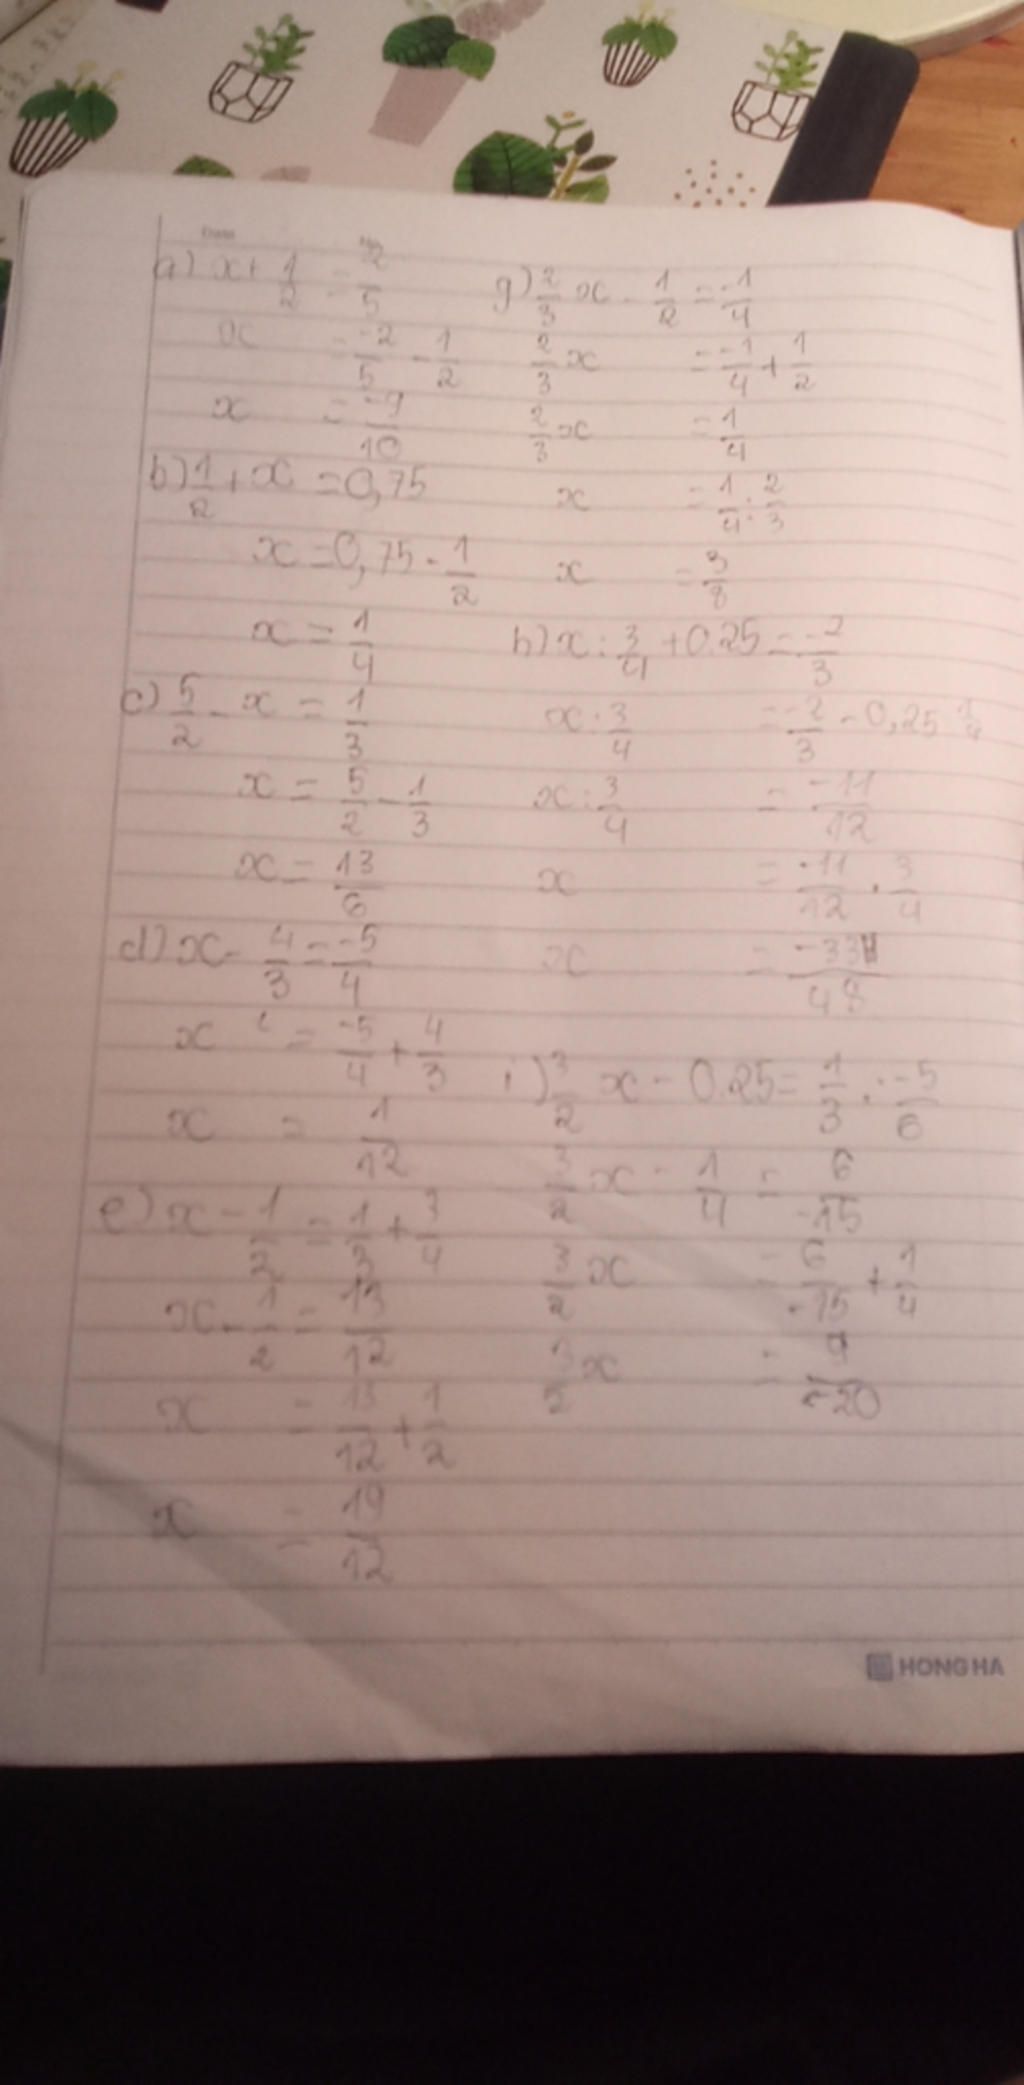 Date No
a) x + 1/2 = -2/5
x = -2/5 - 1/2
x = -9/10
b) 1/2 + x = 0,75
x = 0,75 - 1/2
x = 1/4
c) 5/2 - x = 1/3
x = 5/2 - 1/3
x = 13/6
d) x - 4/3 = -5/4
x = -5/4 + 4/3
x = 1/12
e) x - 1/2 = 1/3 + 3/4
x - 1/2 = 13/12
x = 13/12 + 1/2
x = 19/12
g) 2/3 x - 1/2 = -1/4
2/3 x = -1/4 + 1/2
2/3 x = 1/4
x = 1/4 : 2/3
x = 3/8
h) x : 3/4 + 0.25 = -2/3
x : 3/4 = -2/3 - 0,25 1/4
x : 3/4 = -11/12
x = -11/12 . 3/4
x = -33/48
i) 3/2 x - 0.25 = 1/3 : -5/6
3/2 x - 1/4 = 6/-15
3/2 x = 6/-15 + 1/4
3/2 x = 9/-20
HONG HA